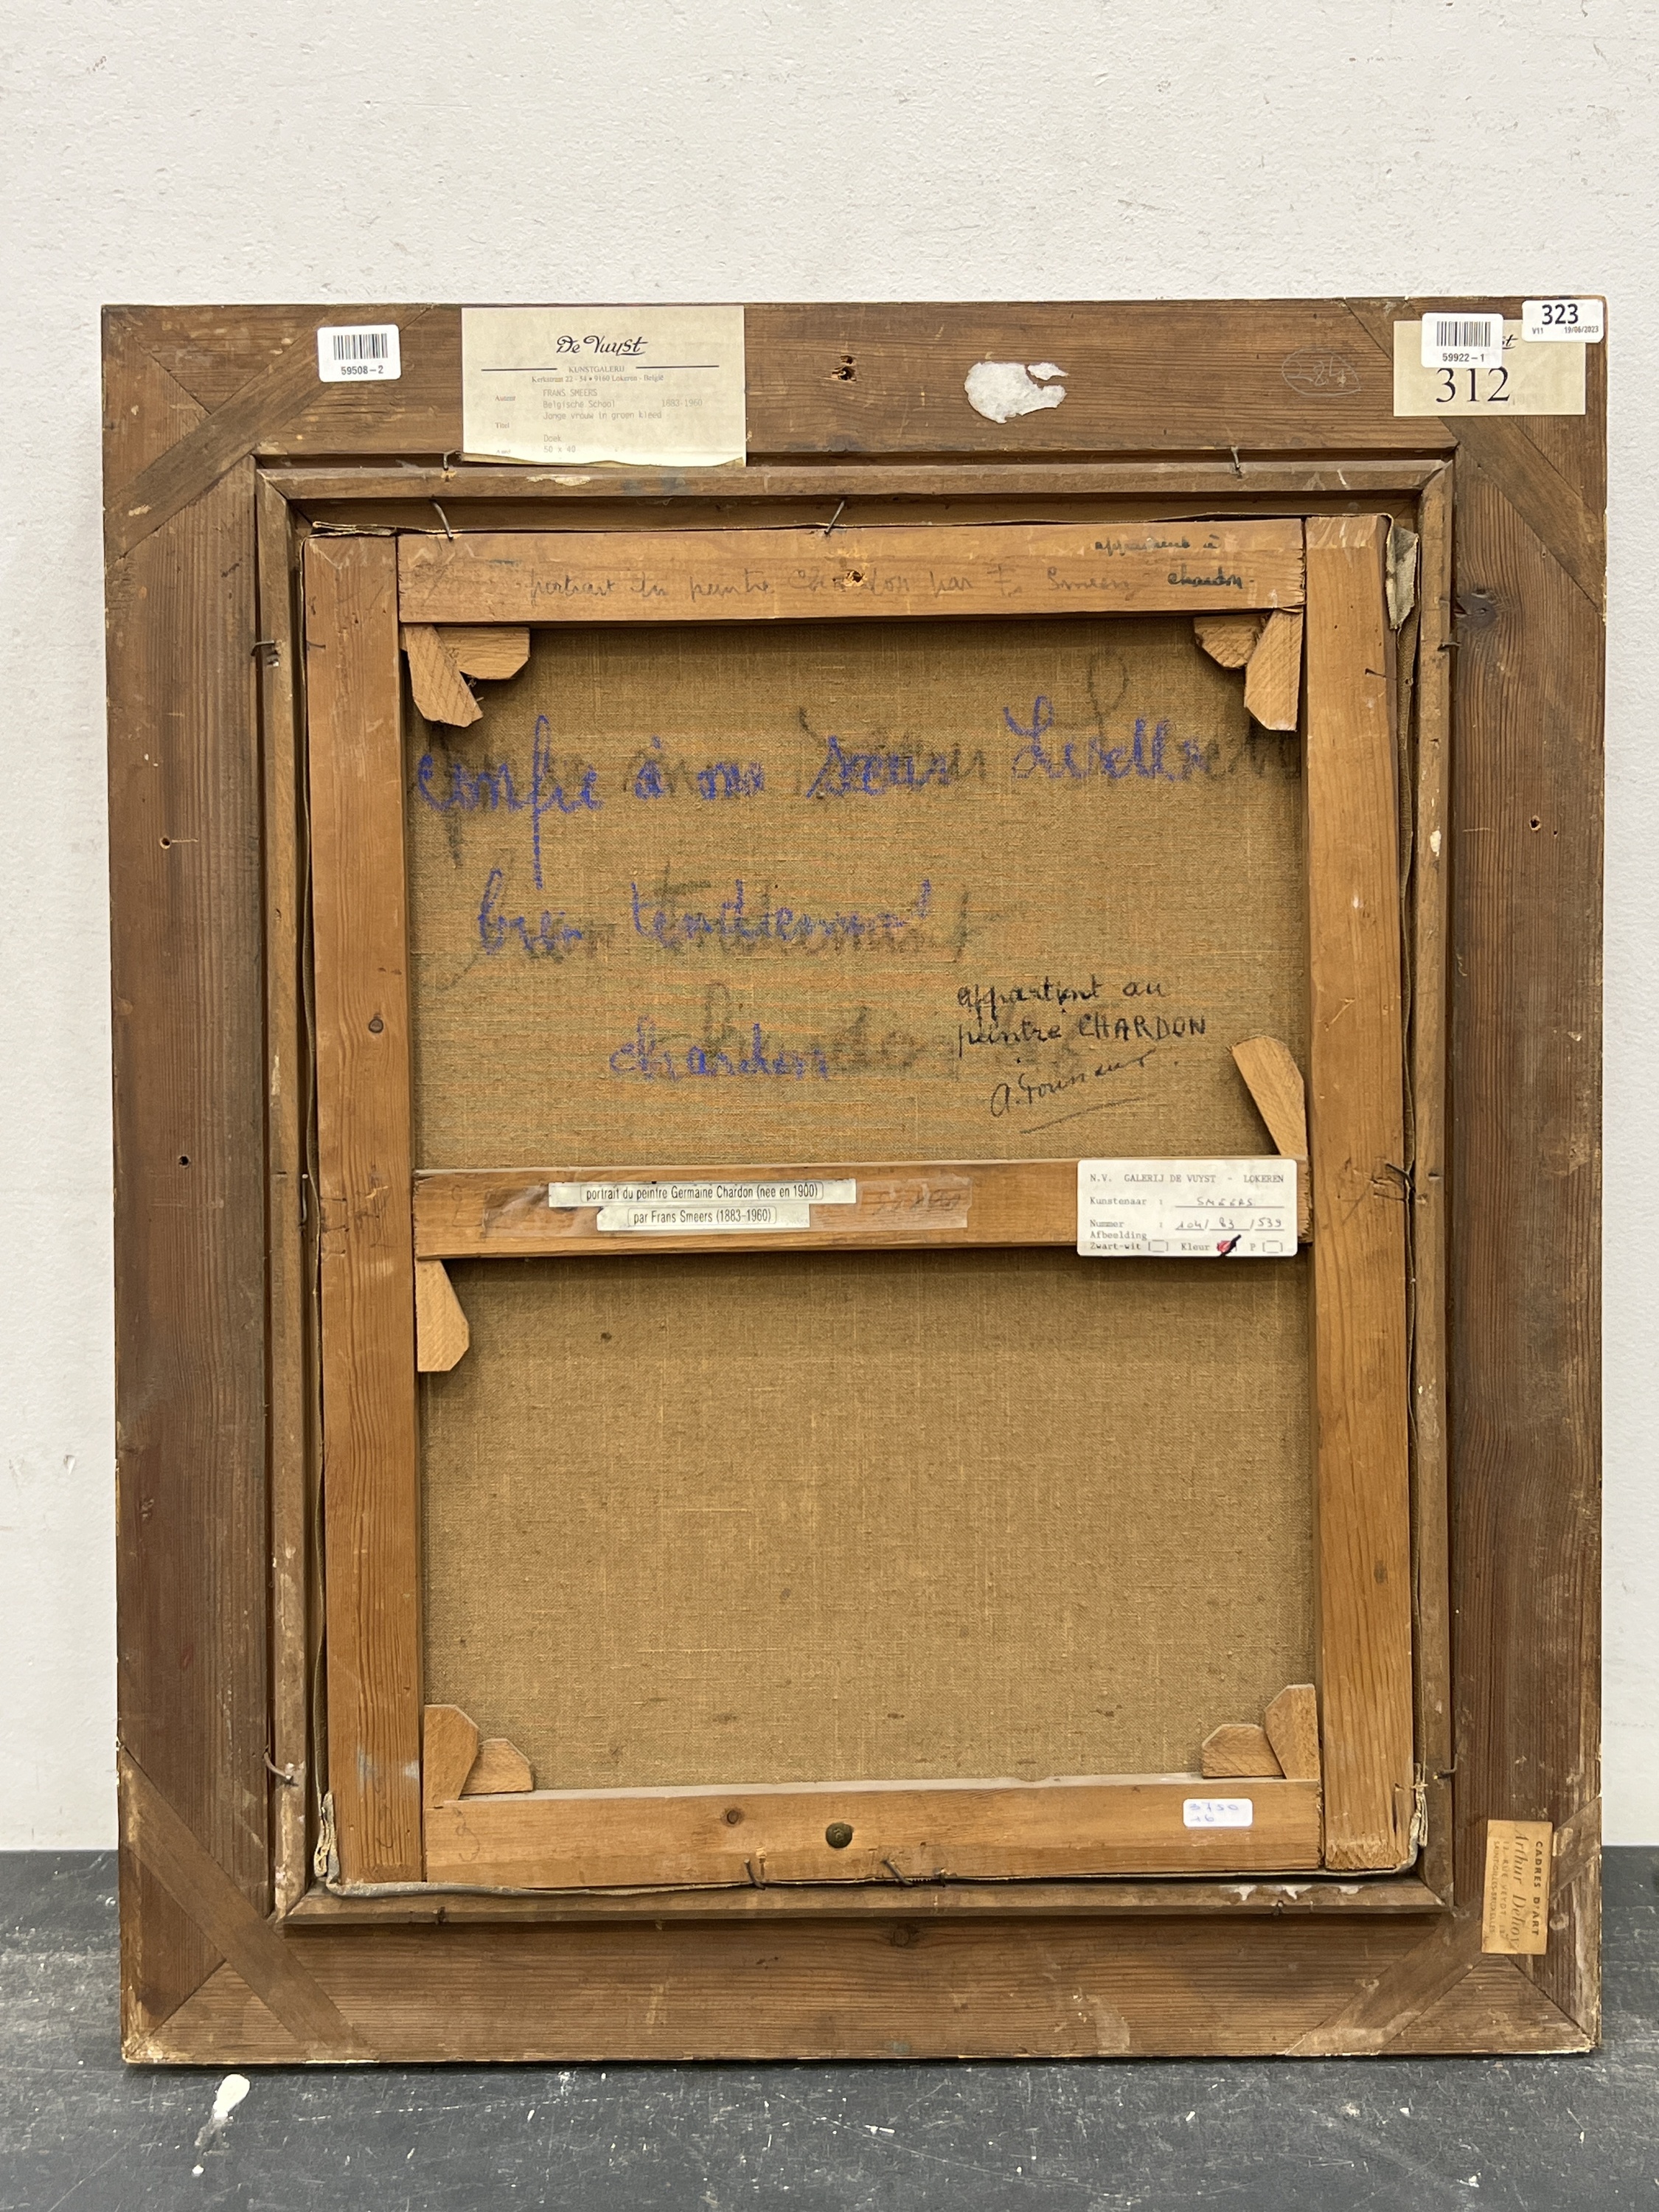 59508-2
De Vuyst
KUNSTGALERIJ
Kerkstraat 22 - 54 • 9160 Lokeren - België
Auteur
FRANS SMEERS
Belgische School 1883-1960
Jonge vrouw in groen kleed
Titel
Doek
50 x 40
24
59922-1
323
V11 19/06/2023
st
312
appartient à
chardon
portrait du peintre Chardon par F. Smeers
confie à ma soeur
bien tendrement
chardon
appartient au
peintre CHARDON
portrait du peintre Germaine Chardon (née en 1900)
par Frans Smeers (1883-1960)
N.V. GALERIJ DE VUYST - LOKEREN
Kunstenaar : SMEERS
Nummer : 104/ 83 /539
Afbeelding
Zwart-wit Kleur P
CADRES D'ART
Arthur